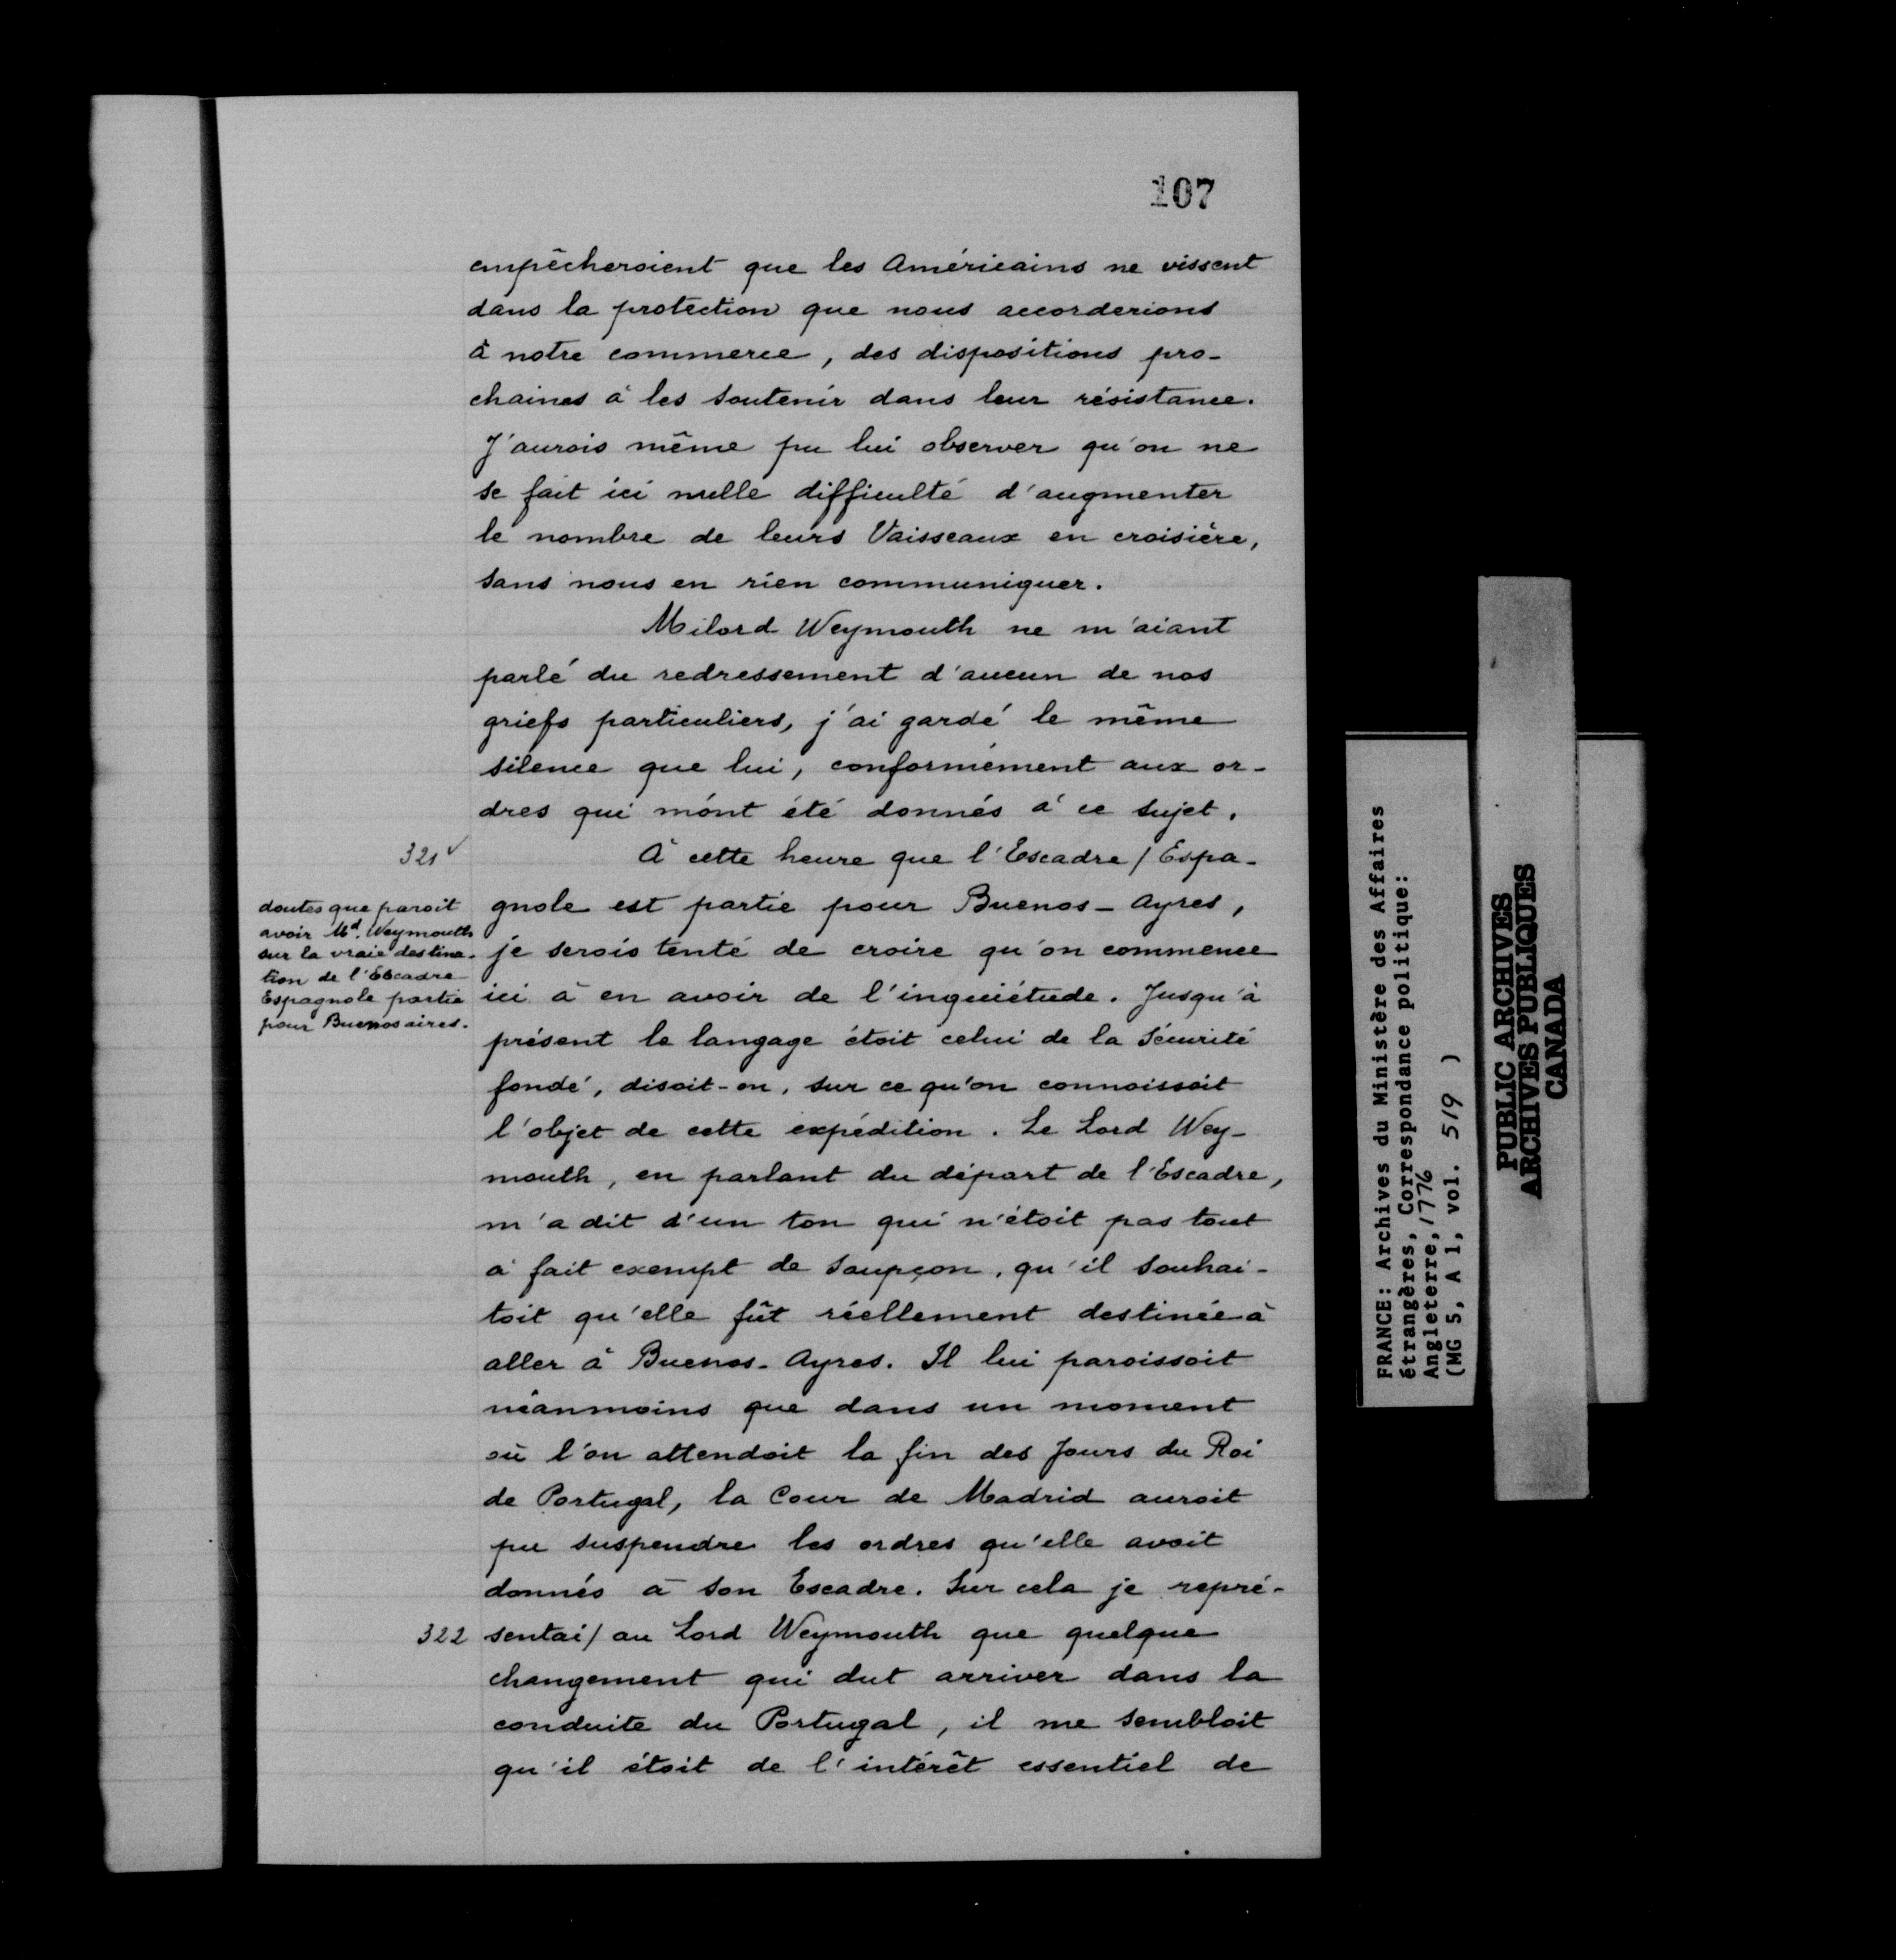 107
empêcheroient que les Américains ne vissent
dans la protection que nous accorderions
à notre commerce, des dispositions pro-
chaines à les soutenir dans leur résistance.
J'aurois même pu lui observer qu'on ne
se fait ici nulle difficulté d'augmenter
le nombre de leurs Vaisseaux en croisière,
sans nous en rien communiquer.
Milord Weymouth ne m'aiant
parlé du redressement d'aucun de nos
griefs particuliers, j'ai gardé le même
silence que lui, conformément aux or-
dres qui m'ont été donnés à ce sujet.
321v
À cette heure que l'Escadre / Espa-
doutes que paroit
avoir Md. Weymouth
sur la vraie destina-
tion de l'Escadre
Espagnole partie
pour Buenos aires.
gnole est partie pour Buenos-Ayres,
je serois tenté de croire qu'on commence
ici à en avoir de l'inquiétude. Jusqu'à
présent le langage étoit celui de la Sécurité
fondé, disoit-on, sur ce qu'on connoissoit
l'objet de cette expédition. Le Lord Wey-
mouth, en parlant du départ de l'Escadre,
m'a dit d'un ton qui n'étoit pas tout
à fait exempt de soupçon, qu'il souhai-
toit qu'elle fût réellement destinée à
aller à Buenos-Ayres. Il lui paroissoit
néanmoins que dans un moment
où l'on attendoit la fin des Jours du Roi
de Portugal, la Cour de Madrid auroit
pu suspendre les ordres qu'elle avoit
donnés à son Escadre. Sur cela je repré-
322
sentai / au Lord Weymouth que quelque
changement qui dut arriver dans la
conduite du Portugal, il me sembloit
qu'il étoit de l'intérêt essentiel de
FRANCE: Archives du Ministère des Affaires
étrangères, Correspondance politique:
Angleterre, 1776
(MG 5, A 1, vol. 519 )
PUBLIC ARCHIVES
ARCHIVES PUBLIQUES
CANADA